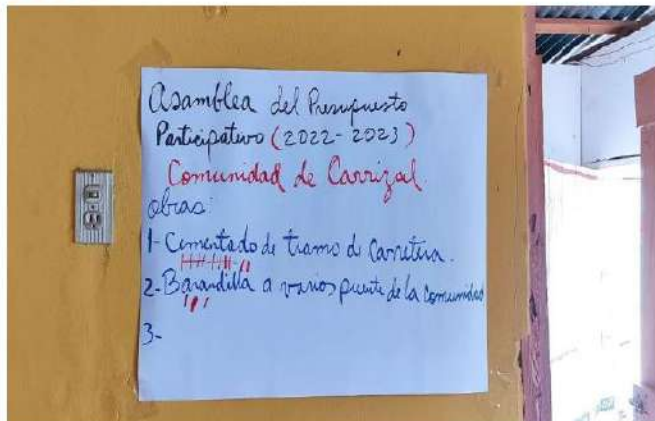 Asamblea del Presupuesto
Participativo (2022-2023)
Comunidad de Carrizal.
obras:
1- Cementado de tramo de Carretera.
2- Barandilla a varios puente de la Comunidad
3-